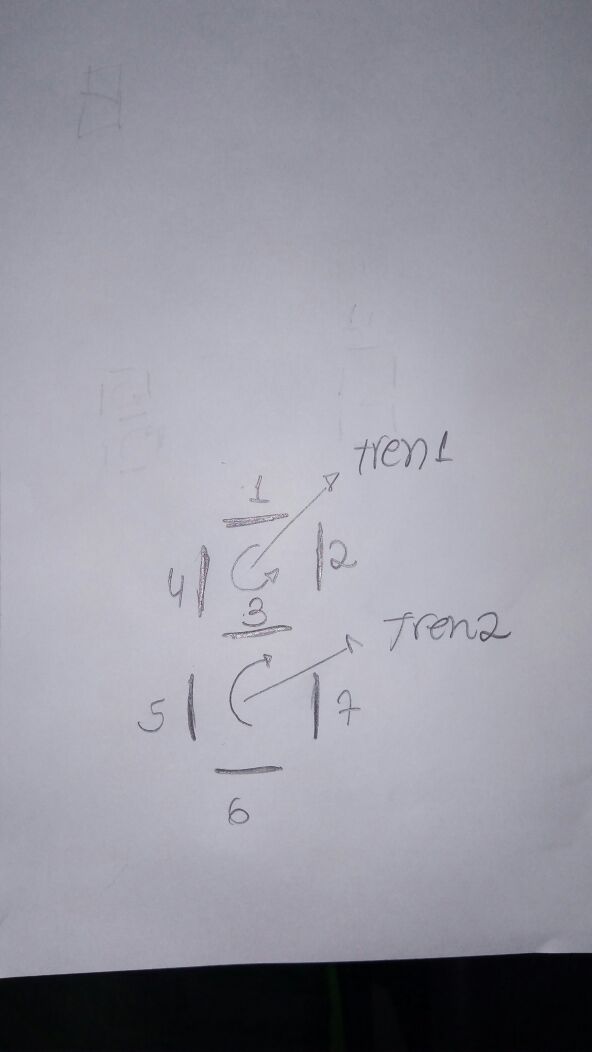 tren1
1
2
4
3
tren2
5
7
6